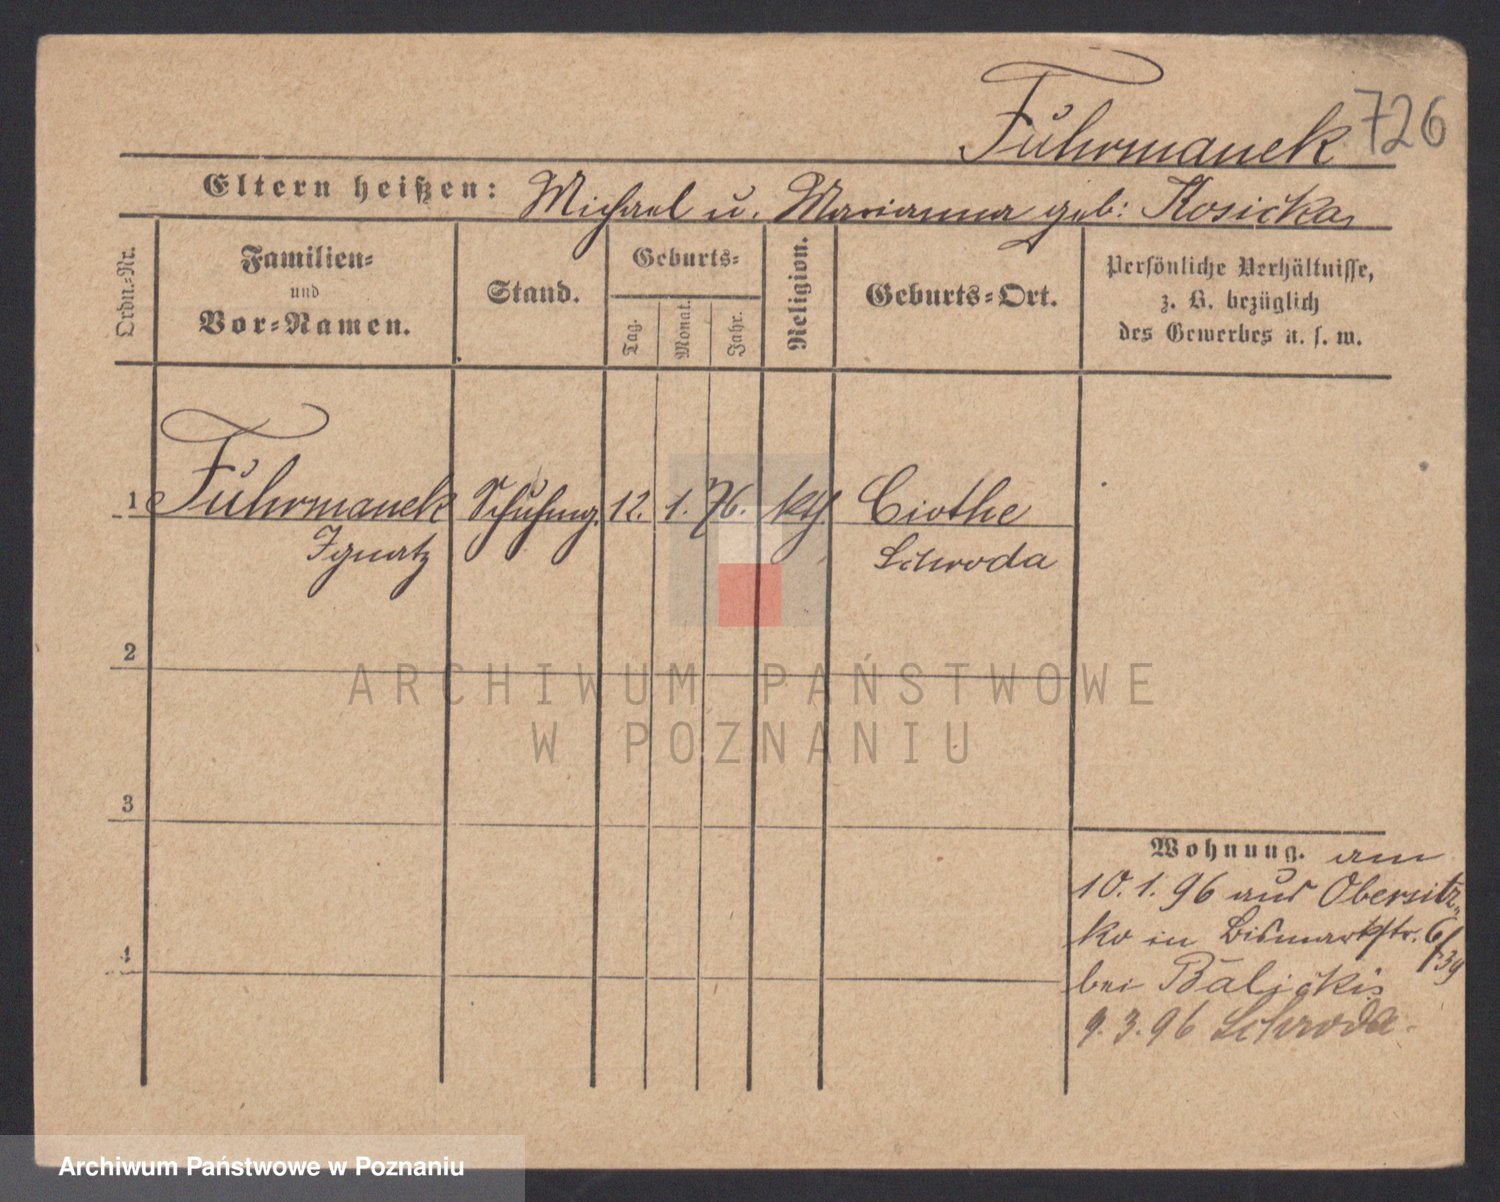 Fuhrmanek 726
Eltern heißen: Michael u. Marianna geb: Kosicka
Ordn.-Nr.
Familien-
und
Vor-Namen.
Stand.
Geburts-
Tag.
Monat.
Jahr.
Religion.
Geburts-Ort.
Persönliche Verhältnisse,
z. B. bezüglich
des Gewerbes u. s. w.
1 Fuhrmanek Schuhmg. 12. 1. 76. kth. Ciothe
Ignatz Schroda
2
ARCHIWUM PAŃSTWOWE
W POZNANIU
3
Wohnung. am
10. 1. 96 aus Obersitz-
ko in Bismarkstr. 6/39
4
bei Balicki
9. 3. 96 Schroda.
Archiwum Państwowe w Poznaniu